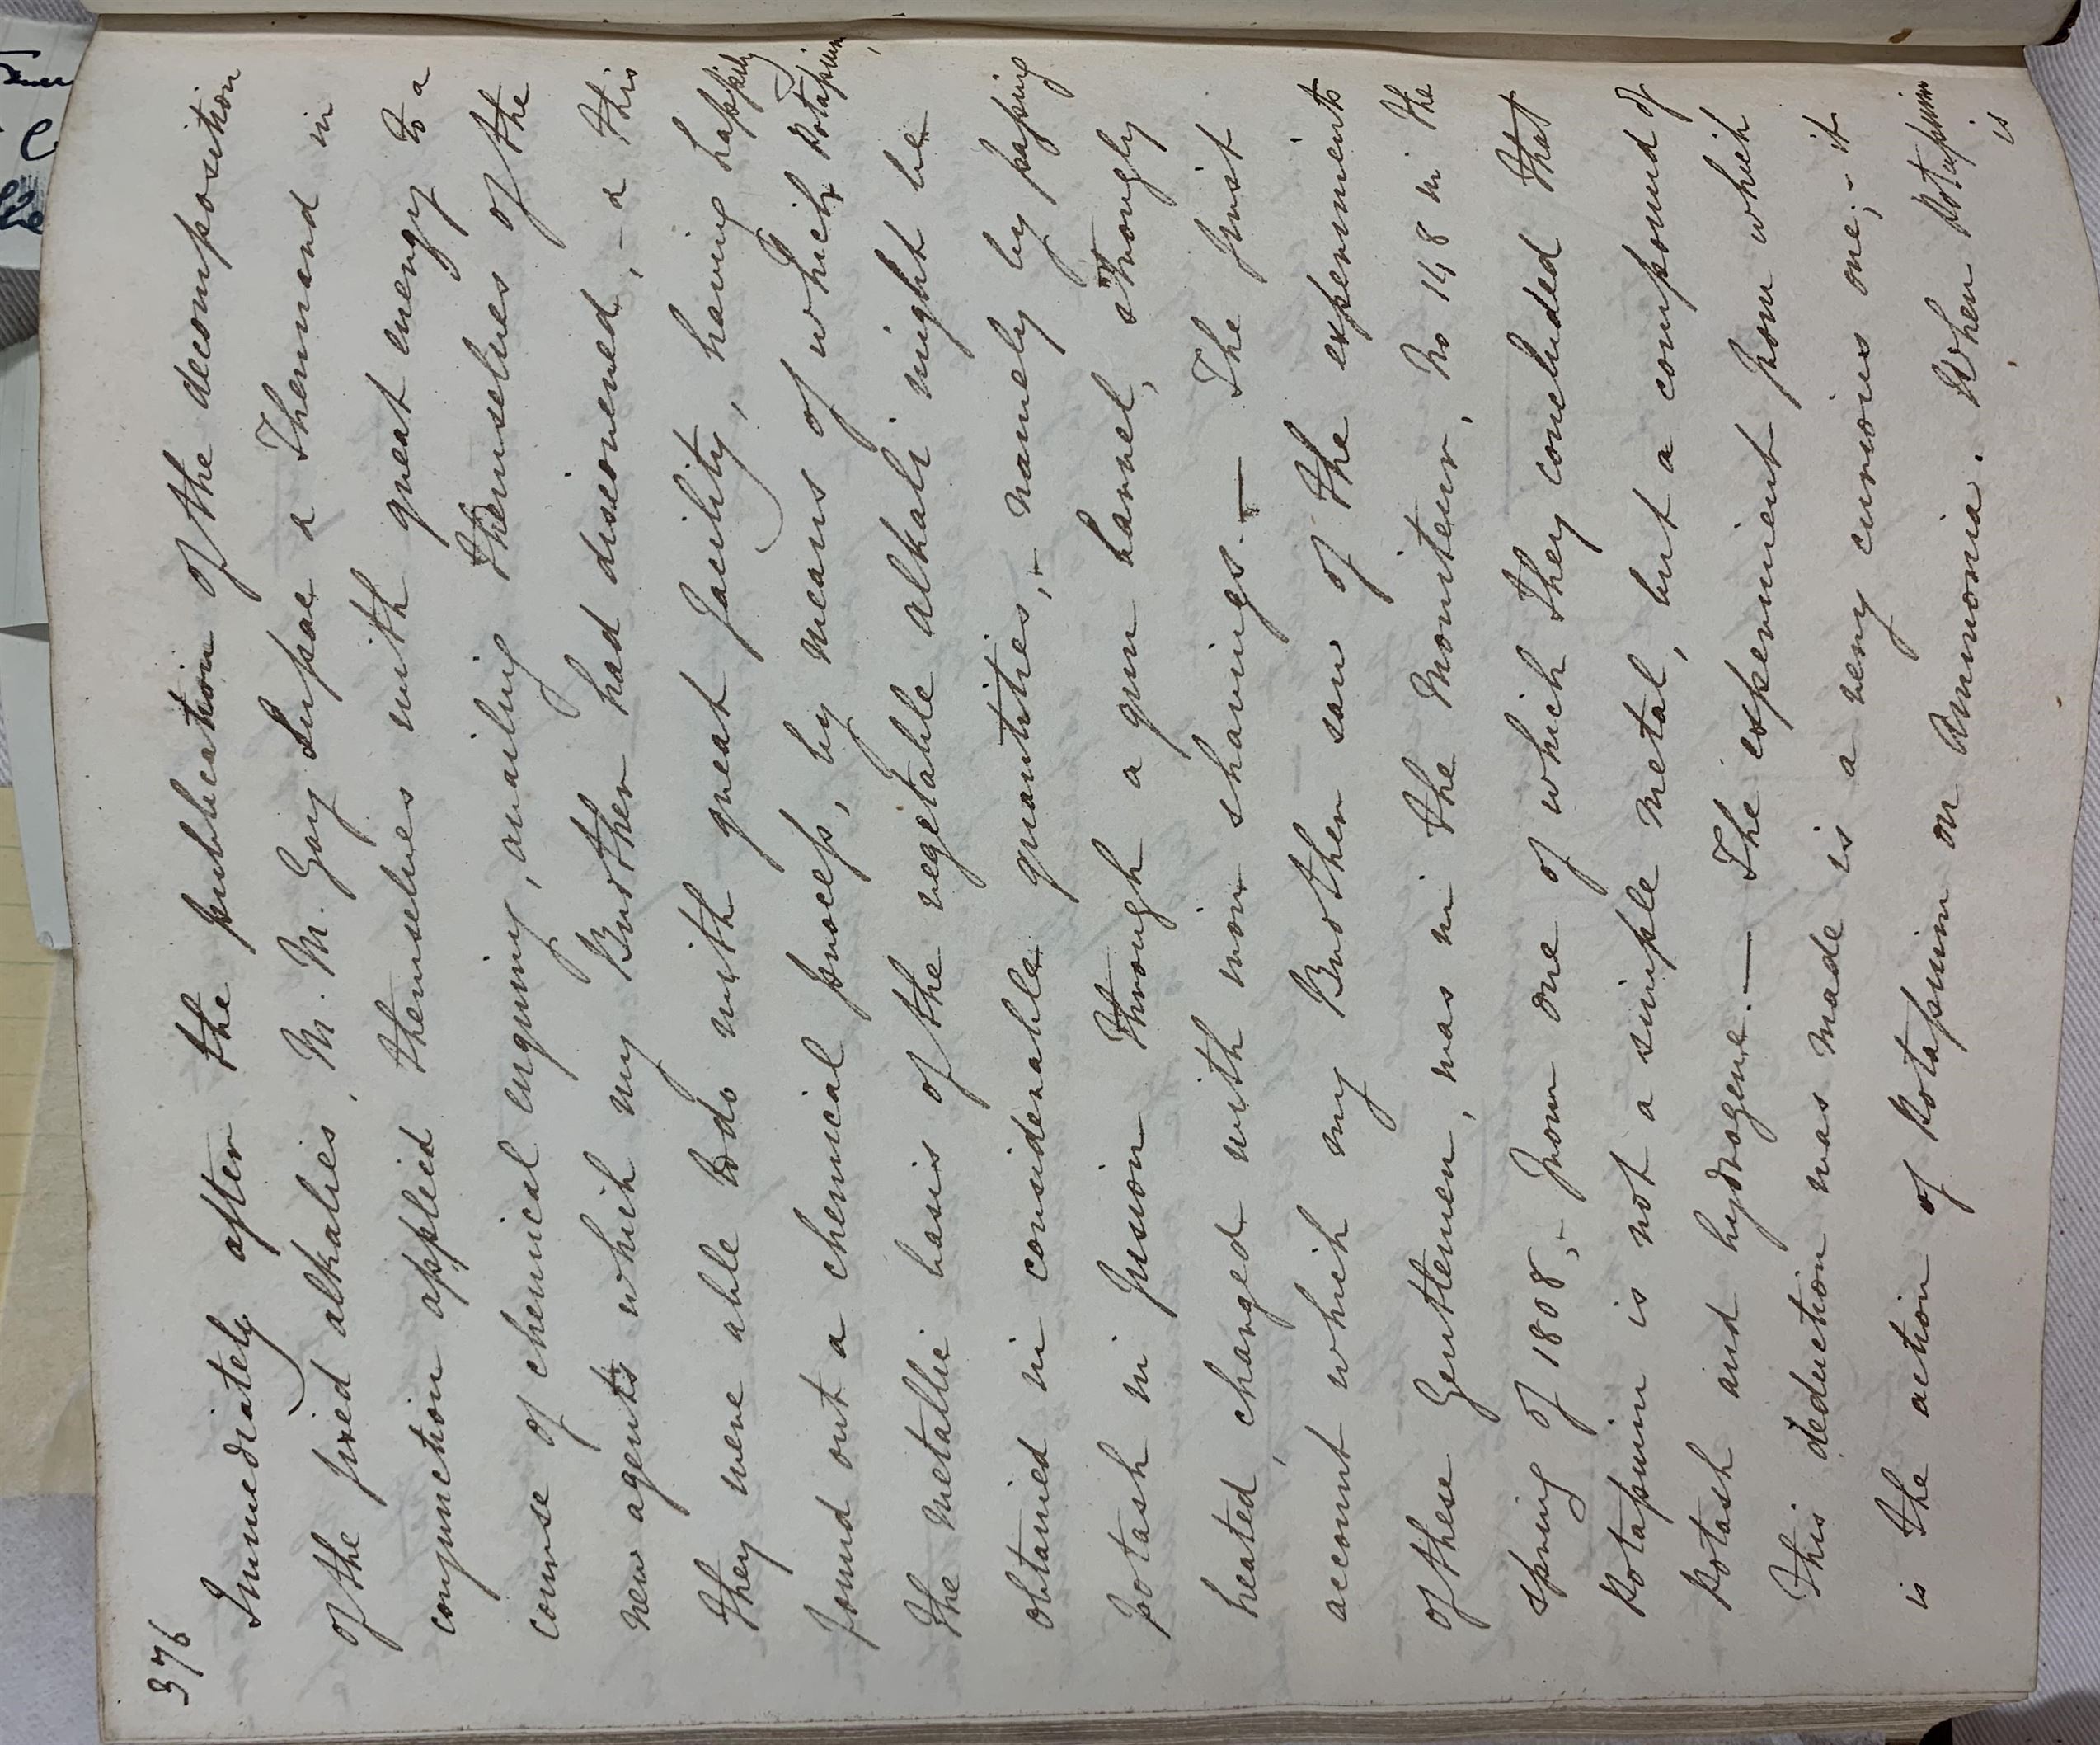 376
Immediately after the publication of the decomposition
of the fixed alkalies, M. M. Gay Lussac & Thenard in
conjunction applied themselves with great energy to a
course of chemical enquiry, availing themselves of the
new agents which my Brother had discovered, – & this
they were able to do with great facility, having happily
found out a chemical process, by means of which Potassium,
the metallic basis of the vegetable alkali might be
obtained in considerable quantities, – namely by passing
potash in fusion through a gun barrel, strongly
heated, charged with iron shavings. — The first
account which my Brother saw of the experiments
of these Gentlemen, was in the Moniteur, No 148 in the
spring of 1808, – from one of which they concluded that
Potassium is not a simple metal, but a compound of
Potash and hydrogene. — The experiment from which
this deduction was made is a very curious one; – it
is the action of Potassium on Ammonia. When Potassium
is